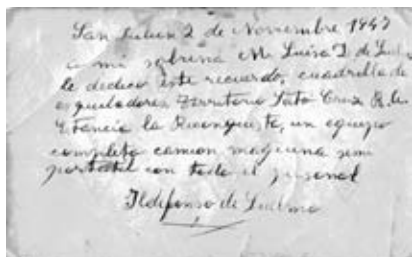 San Julian 2 de Noviembre 1947
a mi sobrina M. Luisa D. de
le dedico este recuerdo, cuadrilla de
esquiladores Territorio Sta Cruz R.A.
Estancia la Reconquista, un equipo
completo camion, maquina semi
portatil con todo el personal
Ildefonso de